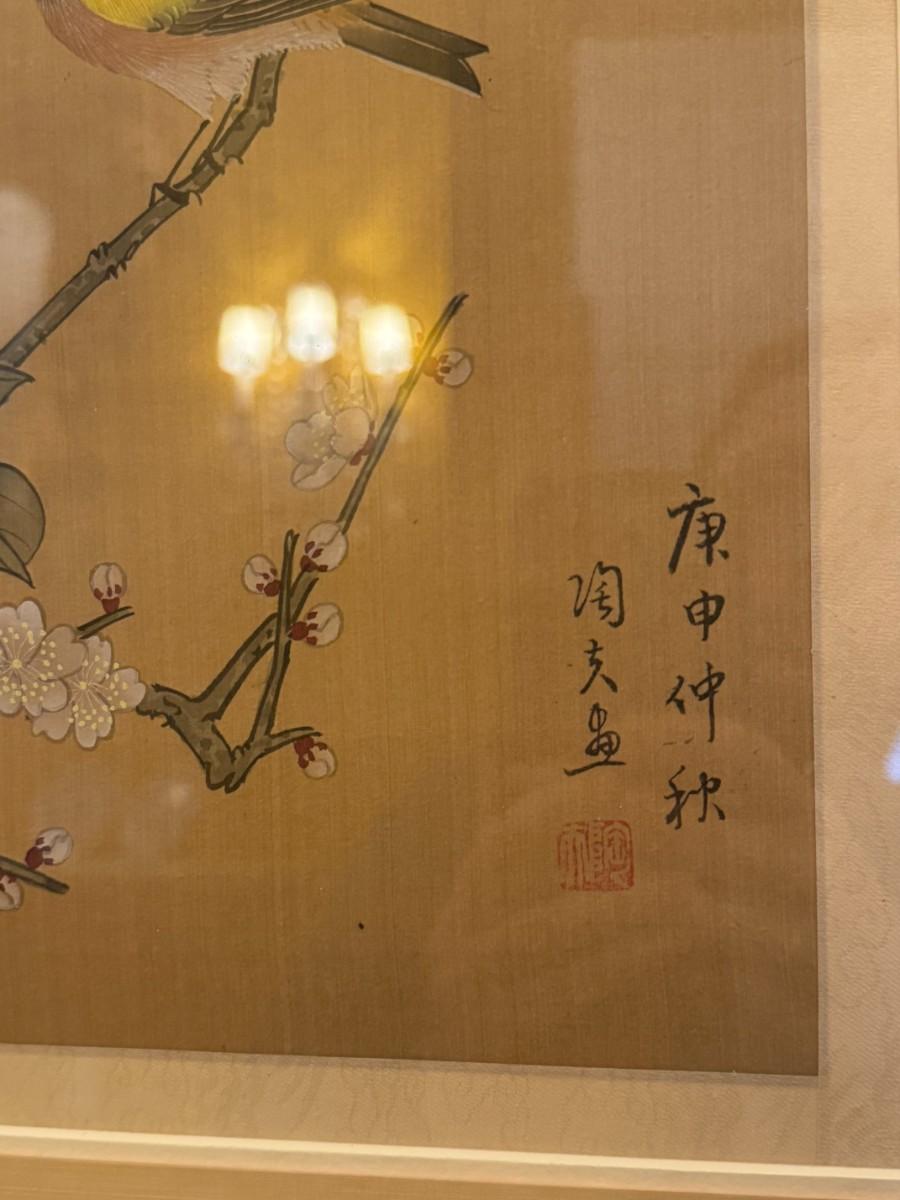 庚申仲秋
陶夫畫